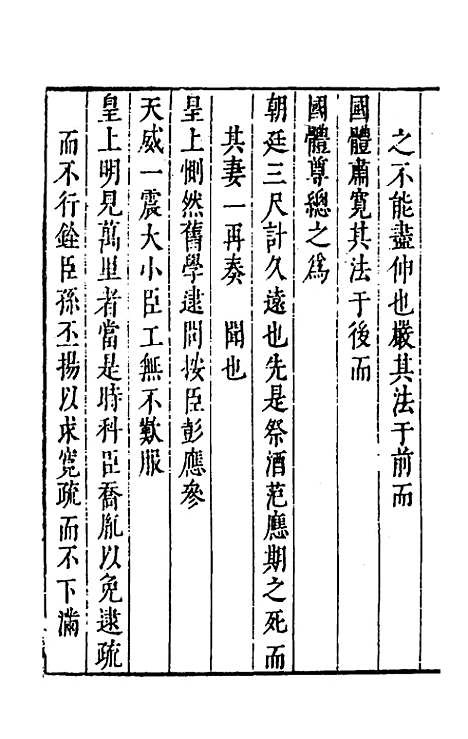 之不能盡伸也嚴其法于前而
國體肅寬其法于後而
國體尊總之爲
朝廷三尺計久遠也先是祭酒范應期之死而
其妻一再奏 聞也
皇上惻然舊學逮問按臣彭應參
天威一震大小臣工無不歎服
皇上明見萬里者當是時科臣喬胤以免逮疏
而不行銓臣孫丕揚以求寬疏而不下滿